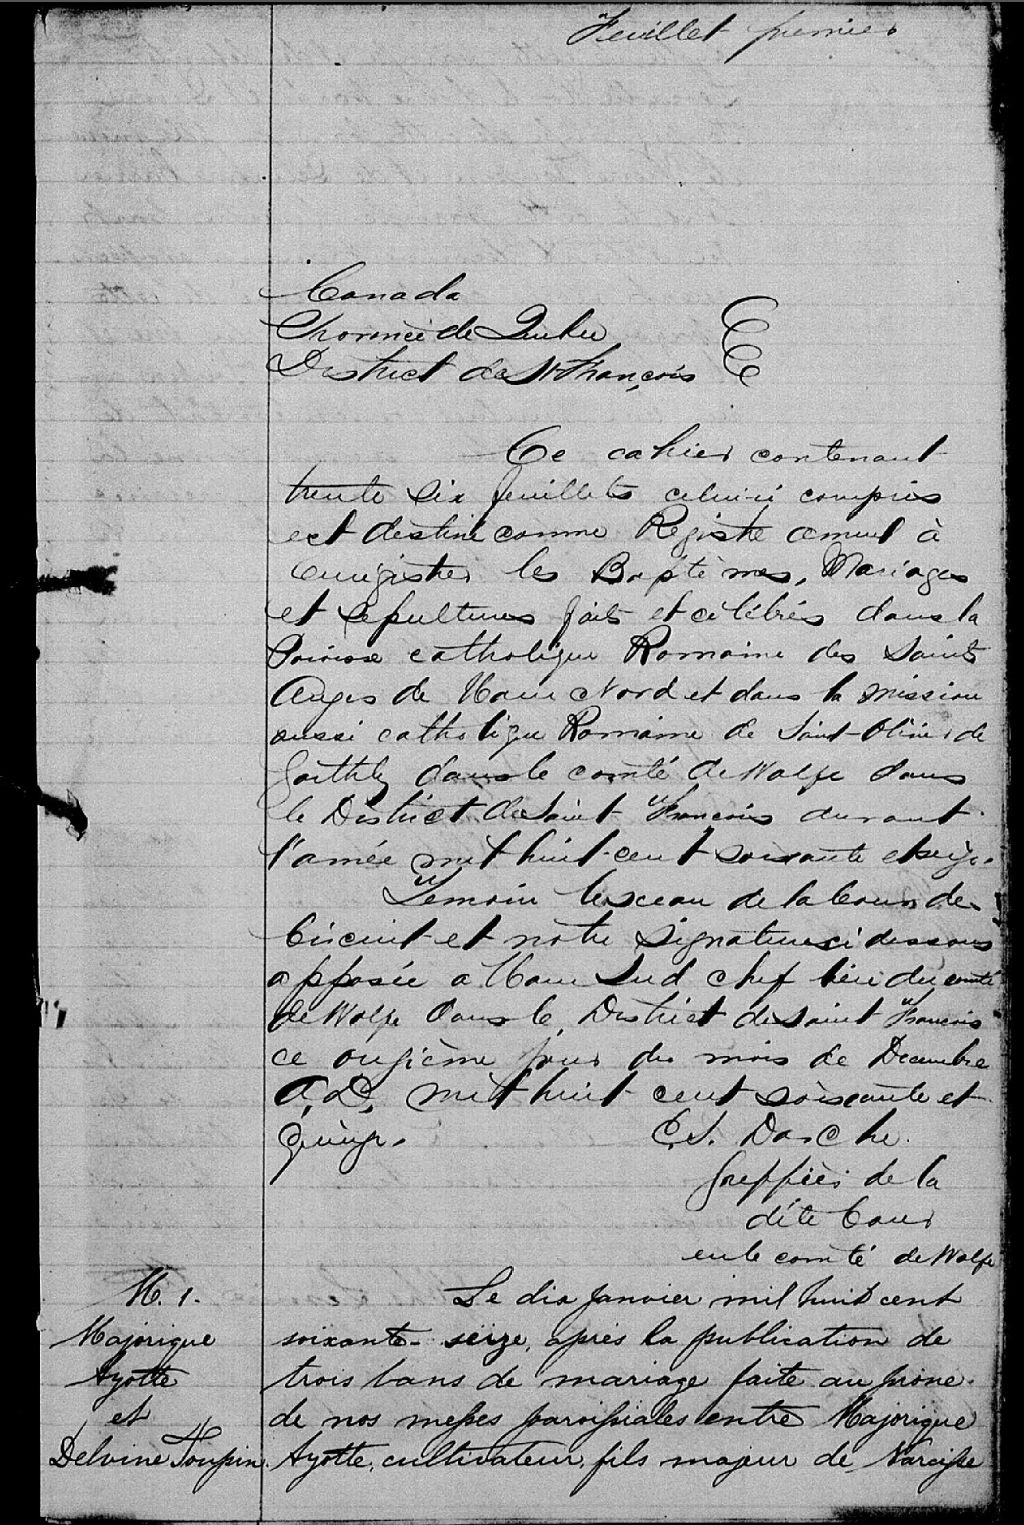 Feuillet premier
Canada
Province de Quebec
District de St François
Ce cahier contenant
trente six feuillets celui-ci compris
est destiné comme Registre annuel à
enregistrer les Baptêmes, Mariages
et sépultures faits et célébrés dans la
Paroisse catholique Romaine des Saints
Anges de Ham Nord et dans la mission
aussi catholique Romaine de Saint-Olivier de
Garthby dans le comté de Wolfe dans
le District de Saint François durant
l'année mil huit-cent soixante et seize.
Temoin le sceau de la Cour de
Circuit et notre signature ci dessous
apposée a Ham Sud chef lieu du comté
de Wolfe dans le District de Saint François
ce onzième jour du mois de Decembre
A.D. mil huit cent soixante et
quinze.
C. S. Darche.
Greffier de la
dite Cour
en le comté de Wolfe
M. 1.
Majorique
Ayotte
et
Delvine Toupin.
Le dix janvier mil huit cent
soixante-seize, après la publication de
trois bans de mariage faite au prone
de nos messes paroissiales entre Majorique
Ayotte, cultivateur, fils majeur de Narcisse